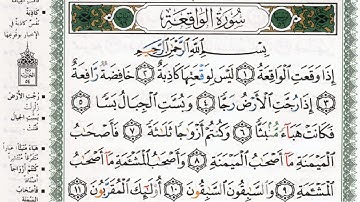 سُورَةُ الْوَاقِعَةِ
بِسْمِ اللَّهِ الرَّحْمَٰنِ الرَّحِيمِ
إِذَا وَقَعَتِ الْوَاقِعَةُ ١ لَيْسَ لِوَقْعَتِهَا كَاذِبَةٌ ٢ خَافِضَةٌ رَّافِعَةٌ
٣ إِذَا رُجَّتِ الْأَرْضُ رَجًّا ٤ وَبُسَّتِ الْجِبَالُ بَسًّا ٥
فَكَانَتْ هَبَاءً مُّنبَثًّا ٦ وَكُنتُمْ أَزْوَاجًا ثَلَاثَةً ٧ فَأَصْحَابُ
الْمَيْمَنَةِ مَا أَصْحَابُ الْمَيْمَنَةِ ٨ وَأَصْحَابُ الْمَشْأَمَةِ مَا أَصْحَابُ
الْمَشْأَمَةِ ٩ وَالسَّابِقُونَ السَّابِقُونَ ١٠ أُولَٰئِكَ الْمُقَرَّبُونَ ١١
كَاذِبَةٌ
رُجَّتِ الْأَرْضُ
زُلْزِلَتْ
بُسَّتِ الْجِبَالُ
فُتِّتَتْ
هَبَاءً